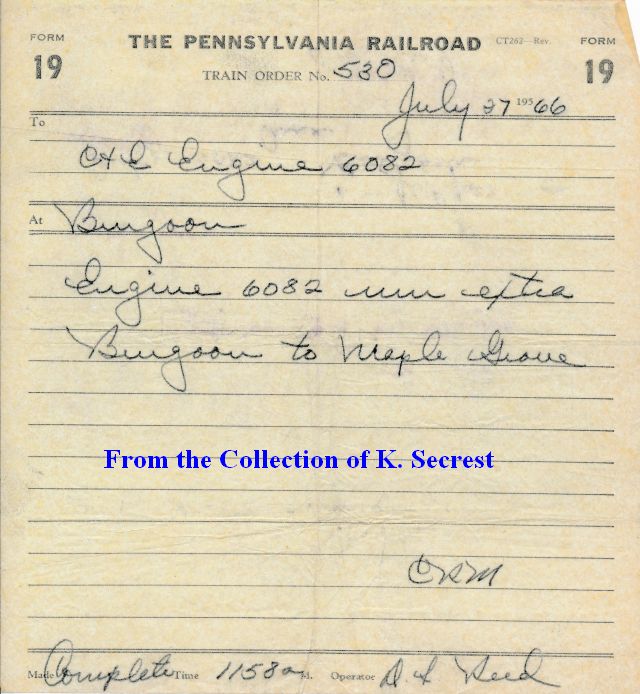 FORM 19
THE PENNSYLVANIA RAILROAD
CT262—Rev.
FORM 19
TRAIN ORDER No. 530
July 27 19566
To
C&E Engine 6082
At Burgoon
Engine 6082 run extra
Burgoon to Maple Grove
From the Collection of K. Secrest
Made Complete Time 1158 a M. Operator